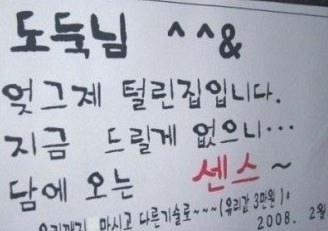 도둑님 ^^&
엊그제 털린집입니다.
지금 드릴게 없으니···
담에 오는 센스~
마시고 다른기술로~~~(유리값 3만원).
2008. 2월